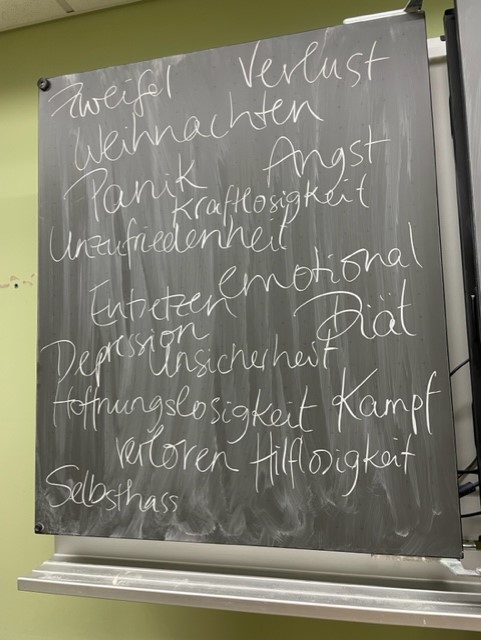 Zweifel Verlust
Weihnachten
Panik Angst
Kraftlosigkeit
Unzufriedenheit
emotional
Entsetzen
Diät
Depression
Unsicherheit
Hoffnungslosigkeit Kampf
verloren Hilflosigkeit
Selbsthass